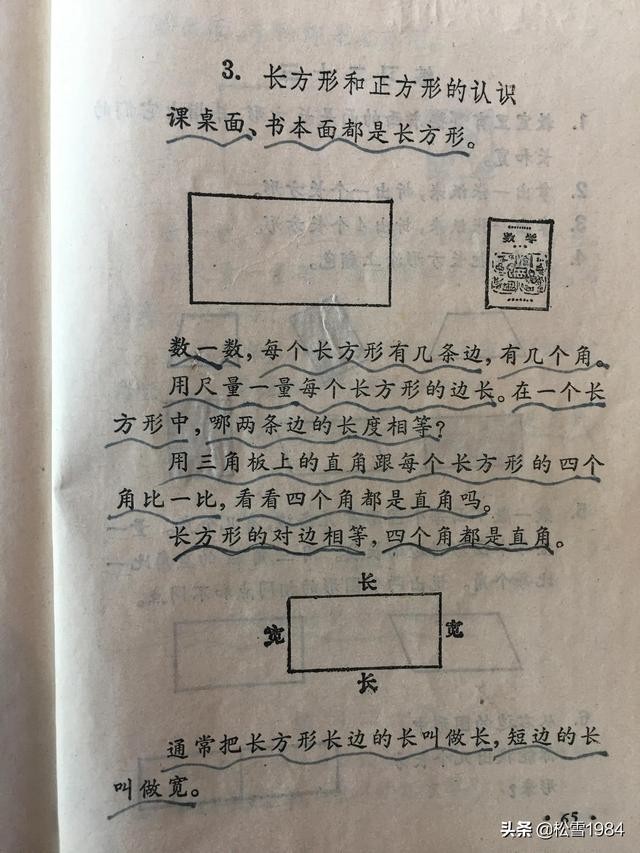 3. 长方形和正方形的认识
课桌面、书本面都是长方形。
数一数，每个长方形有几条边，有几个角。
用尺量一量每个长方形的边长。在一个长
方形中，哪两条边的长度相等？
用三角板上的直角跟每个长方形的四个
角比一比，看看四个角都是直角吗。
长方形的对边相等，四个角都是直角。
长
宽 宽
长
通常把长方形长边的长叫做长，短边的长
叫做宽。
·65·
头条 @松雪1984